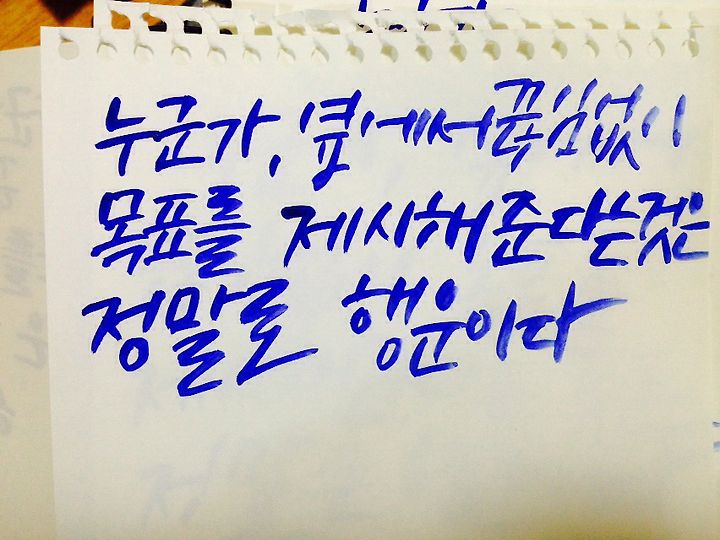 누군가, 옆에서 끊임없이
목표를 제시해 준다는것은
정말로 행운이다